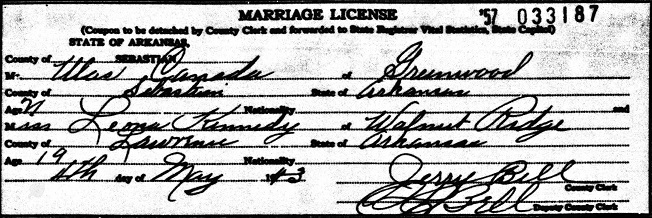 MARRIAGE LICENSE '57 033187
(Coupon to be detached by County Clerk and forwarded to State Registrar Vital Statistics, State Capitol)
STATE OF ARKANSAS,
County of SEBASTIAN
Mr. Canada of Greenwood
County of Sebastian State of Arkansas
Age 21 Nationality and
Miss Leona Kennedy of Walnut Ridge
County of Lawrence State of Arkansas
Age 19 Nationality
4th day of May 1943
Jerry Bell
County Clerk
Bell
Deputy County Clerk